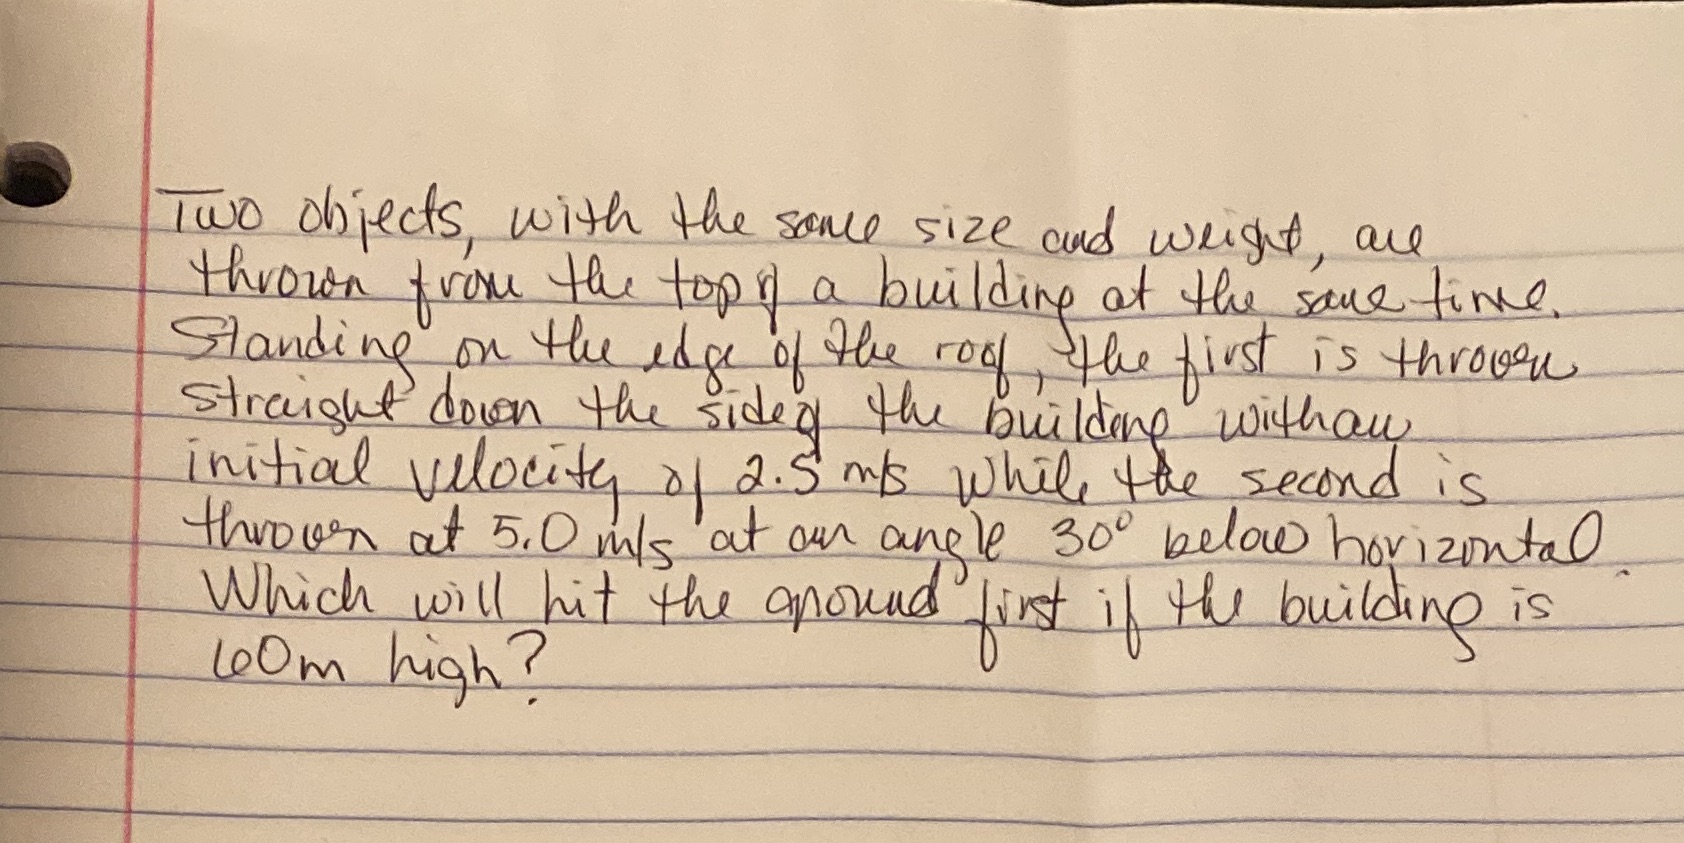 Two objects, with the same size and weight, are
thrown from the top of a building at the same time.
Standing on the edge of the roof, the first is thrown
straight down the side of the building with an
initial velocity of 2.5 m/s while the second is
thrown at 5.0 m/s at an angle 30° below horizontal.
Which will hit the ground first if the building is
60m high?